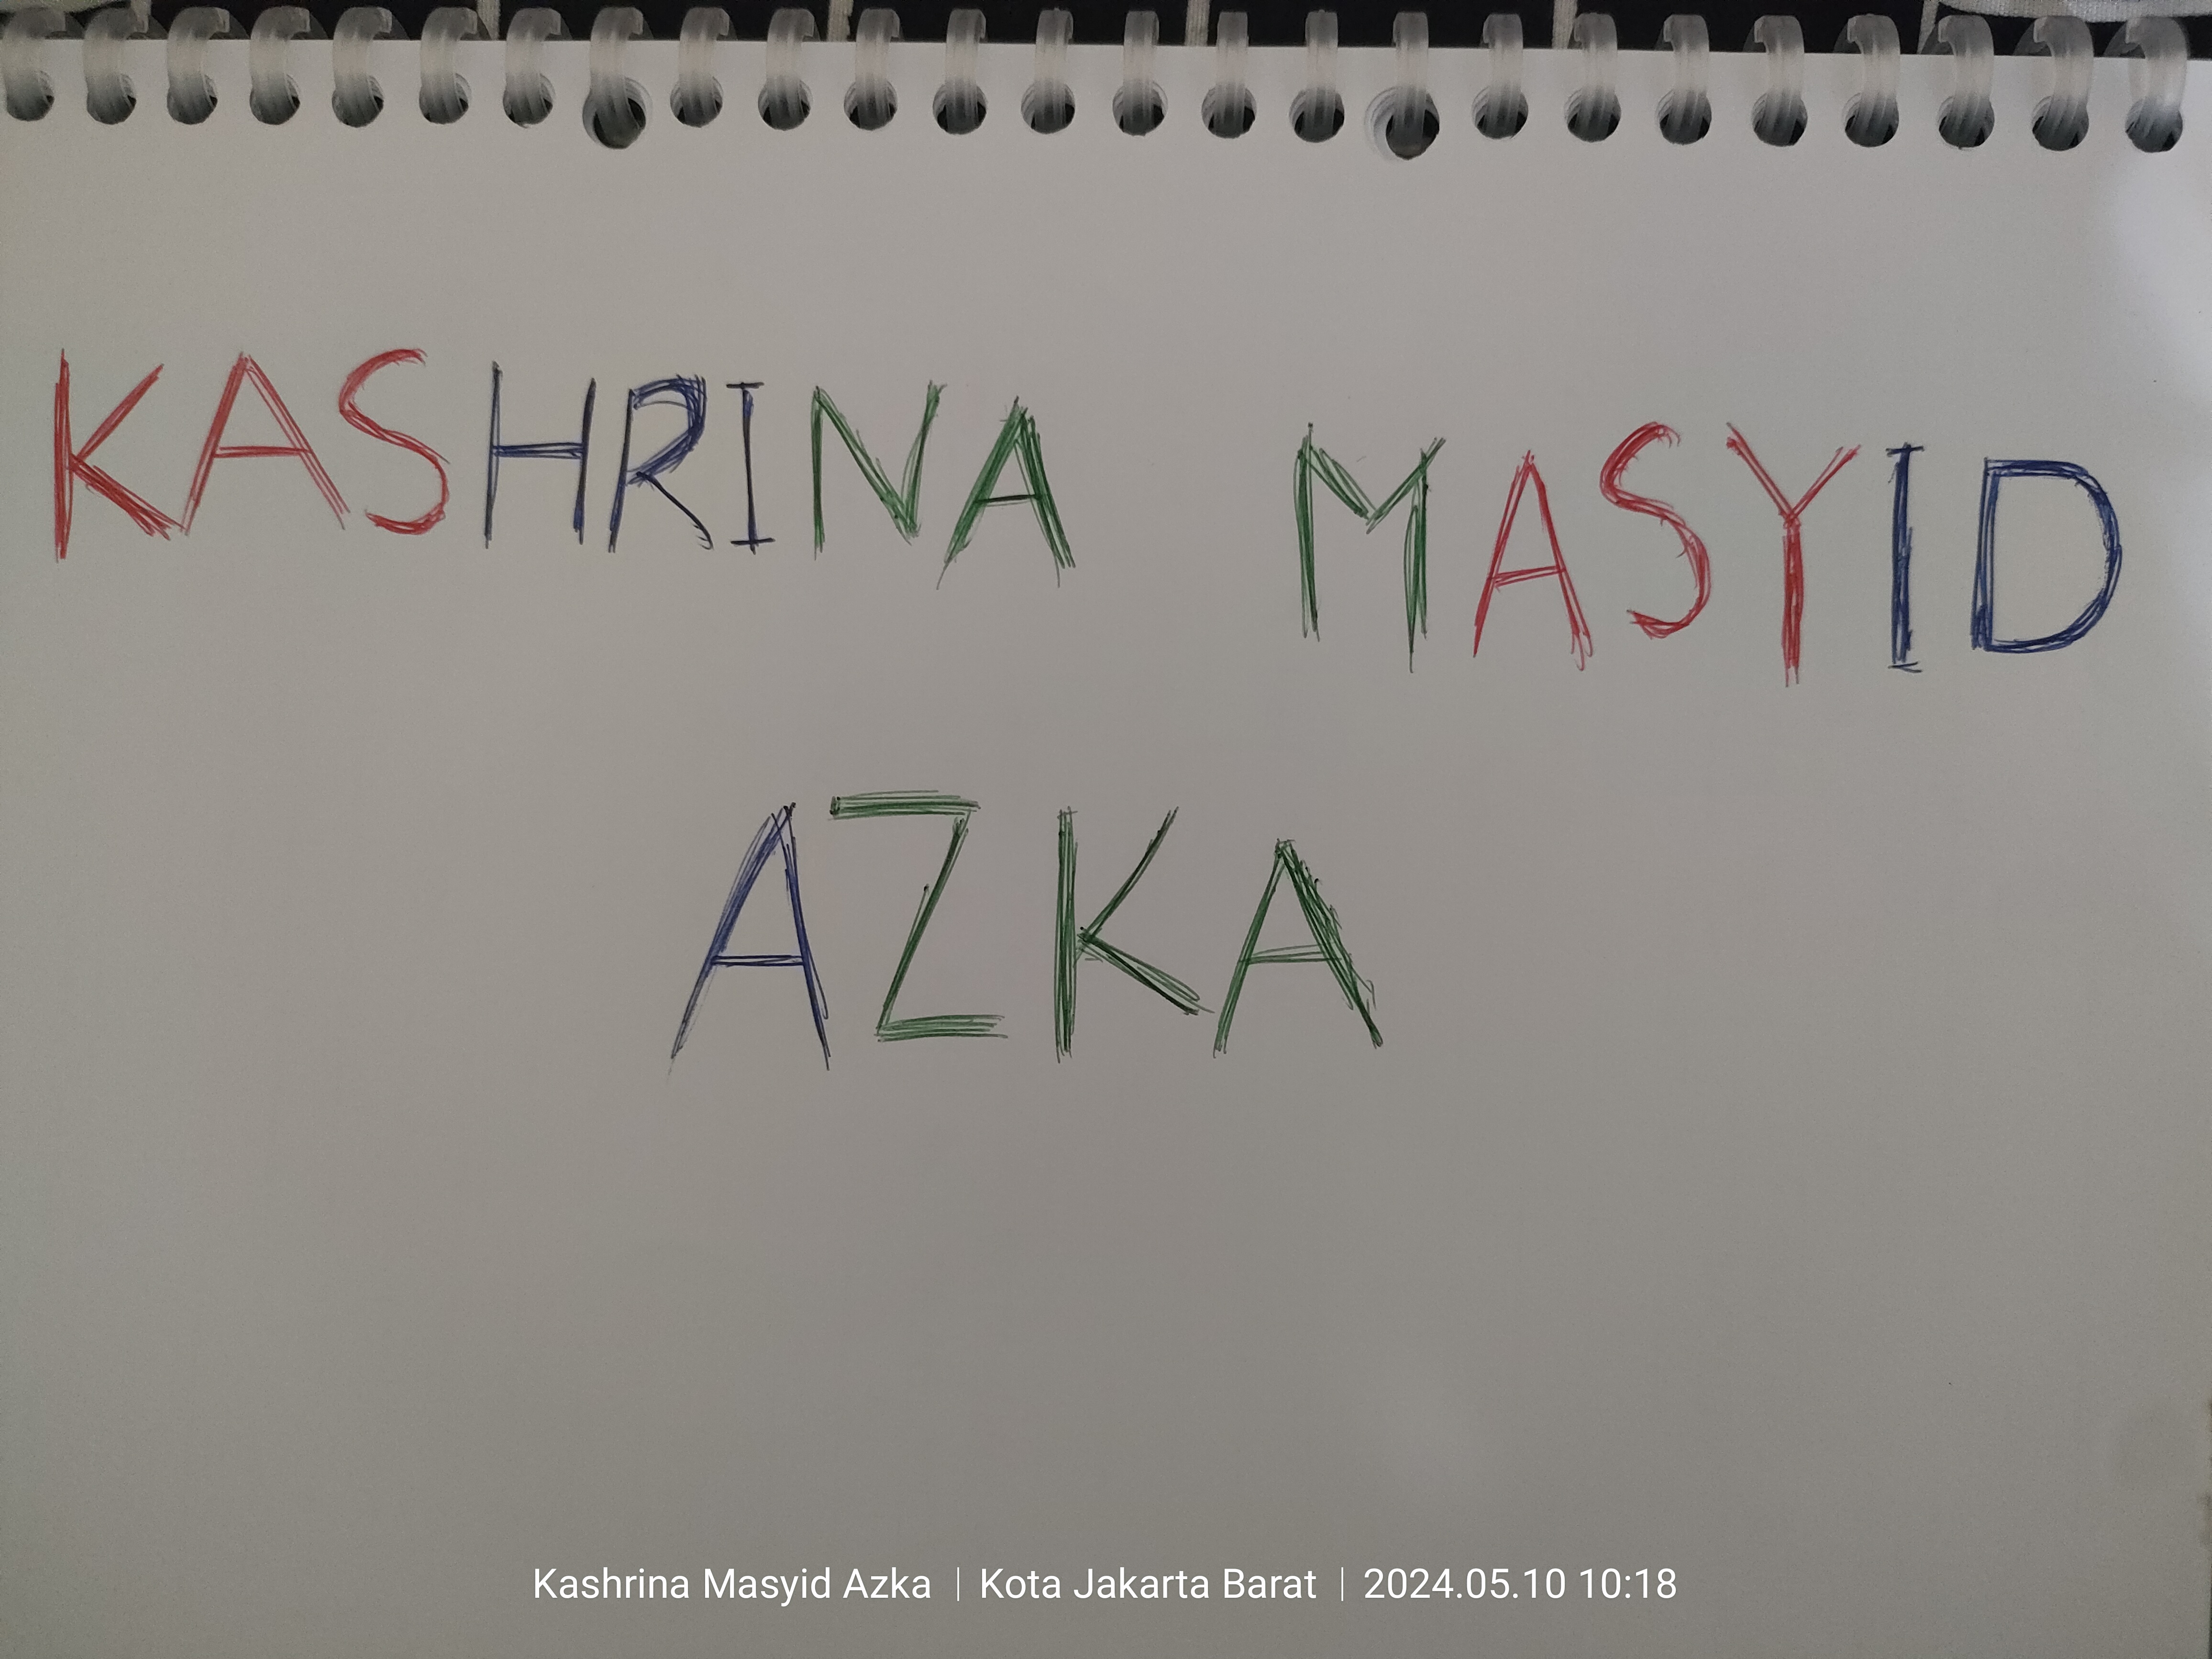 KASHRINA MASYID
AZKA
Kashrina Masyid Azka | Kota Jakarta Barat | 2024.05.10 10:18